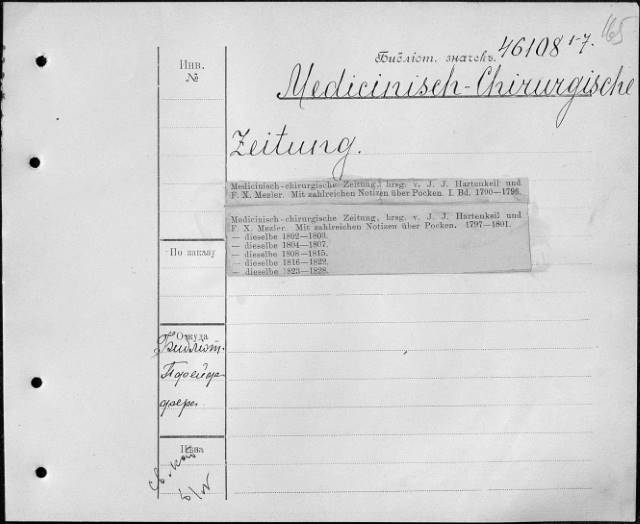 165
Библіот. значекъ. 46108 1-7.
Инв.
№
Medicinisch-Chirurgische
Zeitung.
Medicinisch-chirurgische Zeitung, hrsg. v. J. J. Hartenkeil und
F. X. Mezler. Mit zahlreichen Notizen über Pocken. I. Bd. 1790—1796.
Medicinisch-chirurgische Zeitung, hrsg. v. J. J. Hartenkeil und
F. X. Mezler. Mit zahlreichen Notizen über Pocken. 1797—1801.
— dieselbe 1802—1803.
— dieselbe 1804—1807.
— dieselbe 1808—1815.
— dieselbe 1816—1822.
— dieselbe 1823—1828.
По заказу
Откуда
Библіот.
Пфейф-
фера
Цѣна